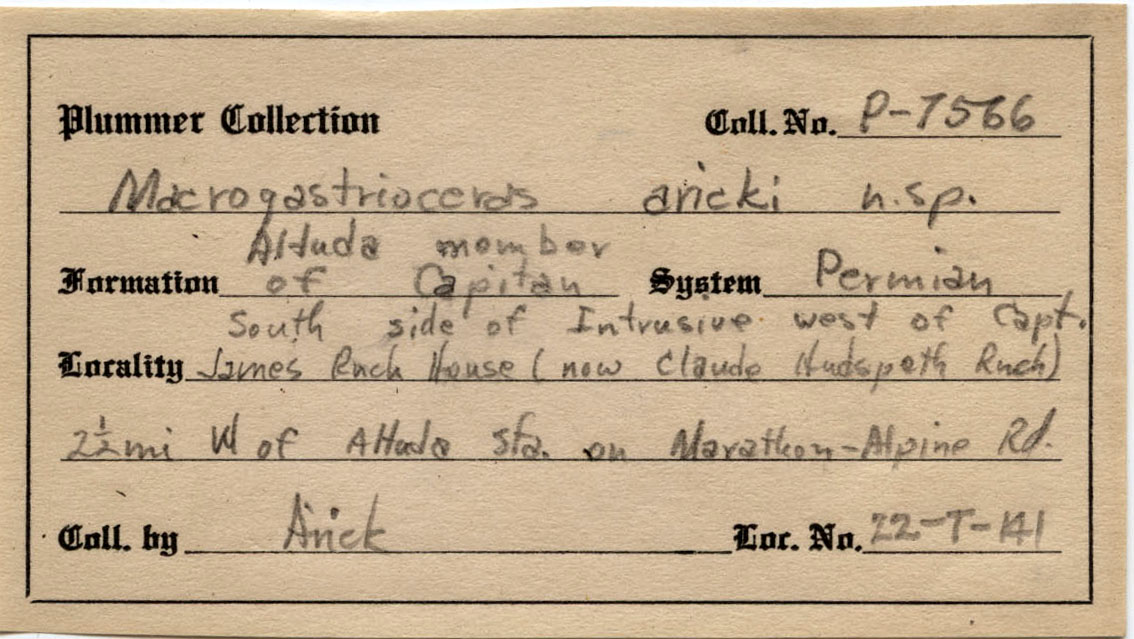 Plummer Collection Coll. No. P-7566
Macrogastrioceras aricki n.sp.
Altuda member
Formation of Capitan System Permian
South side of Intrusive west of Capt.
Locality James Rnch House (now Claude Hudspeth Rnch)
2½ mi W of Altuda sta. on Marathon-Alpine Rd.
Coll. by Arick Loc. No. 22-T-141